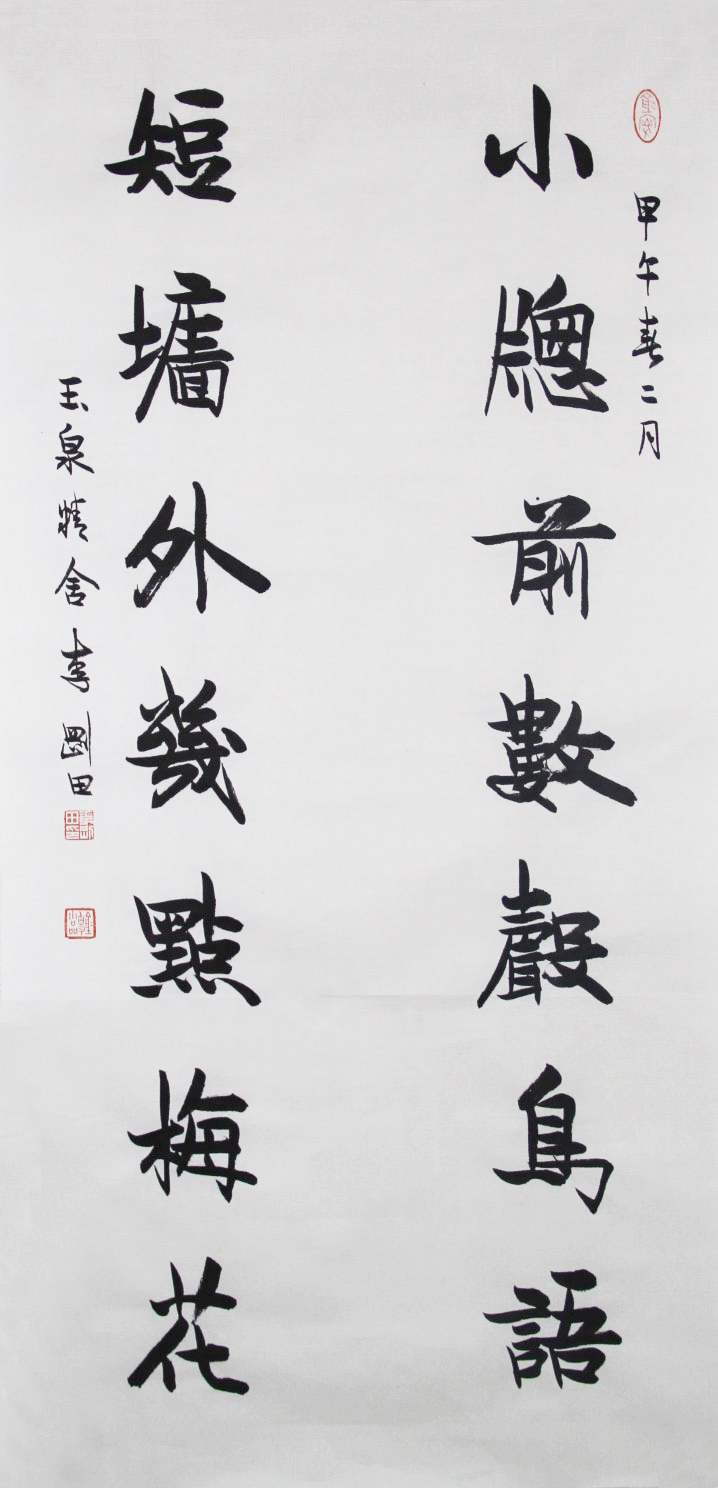 甲午春二月
小牕前數聲鳥語
短墻外幾點梅花
玉泉精舍李剛田